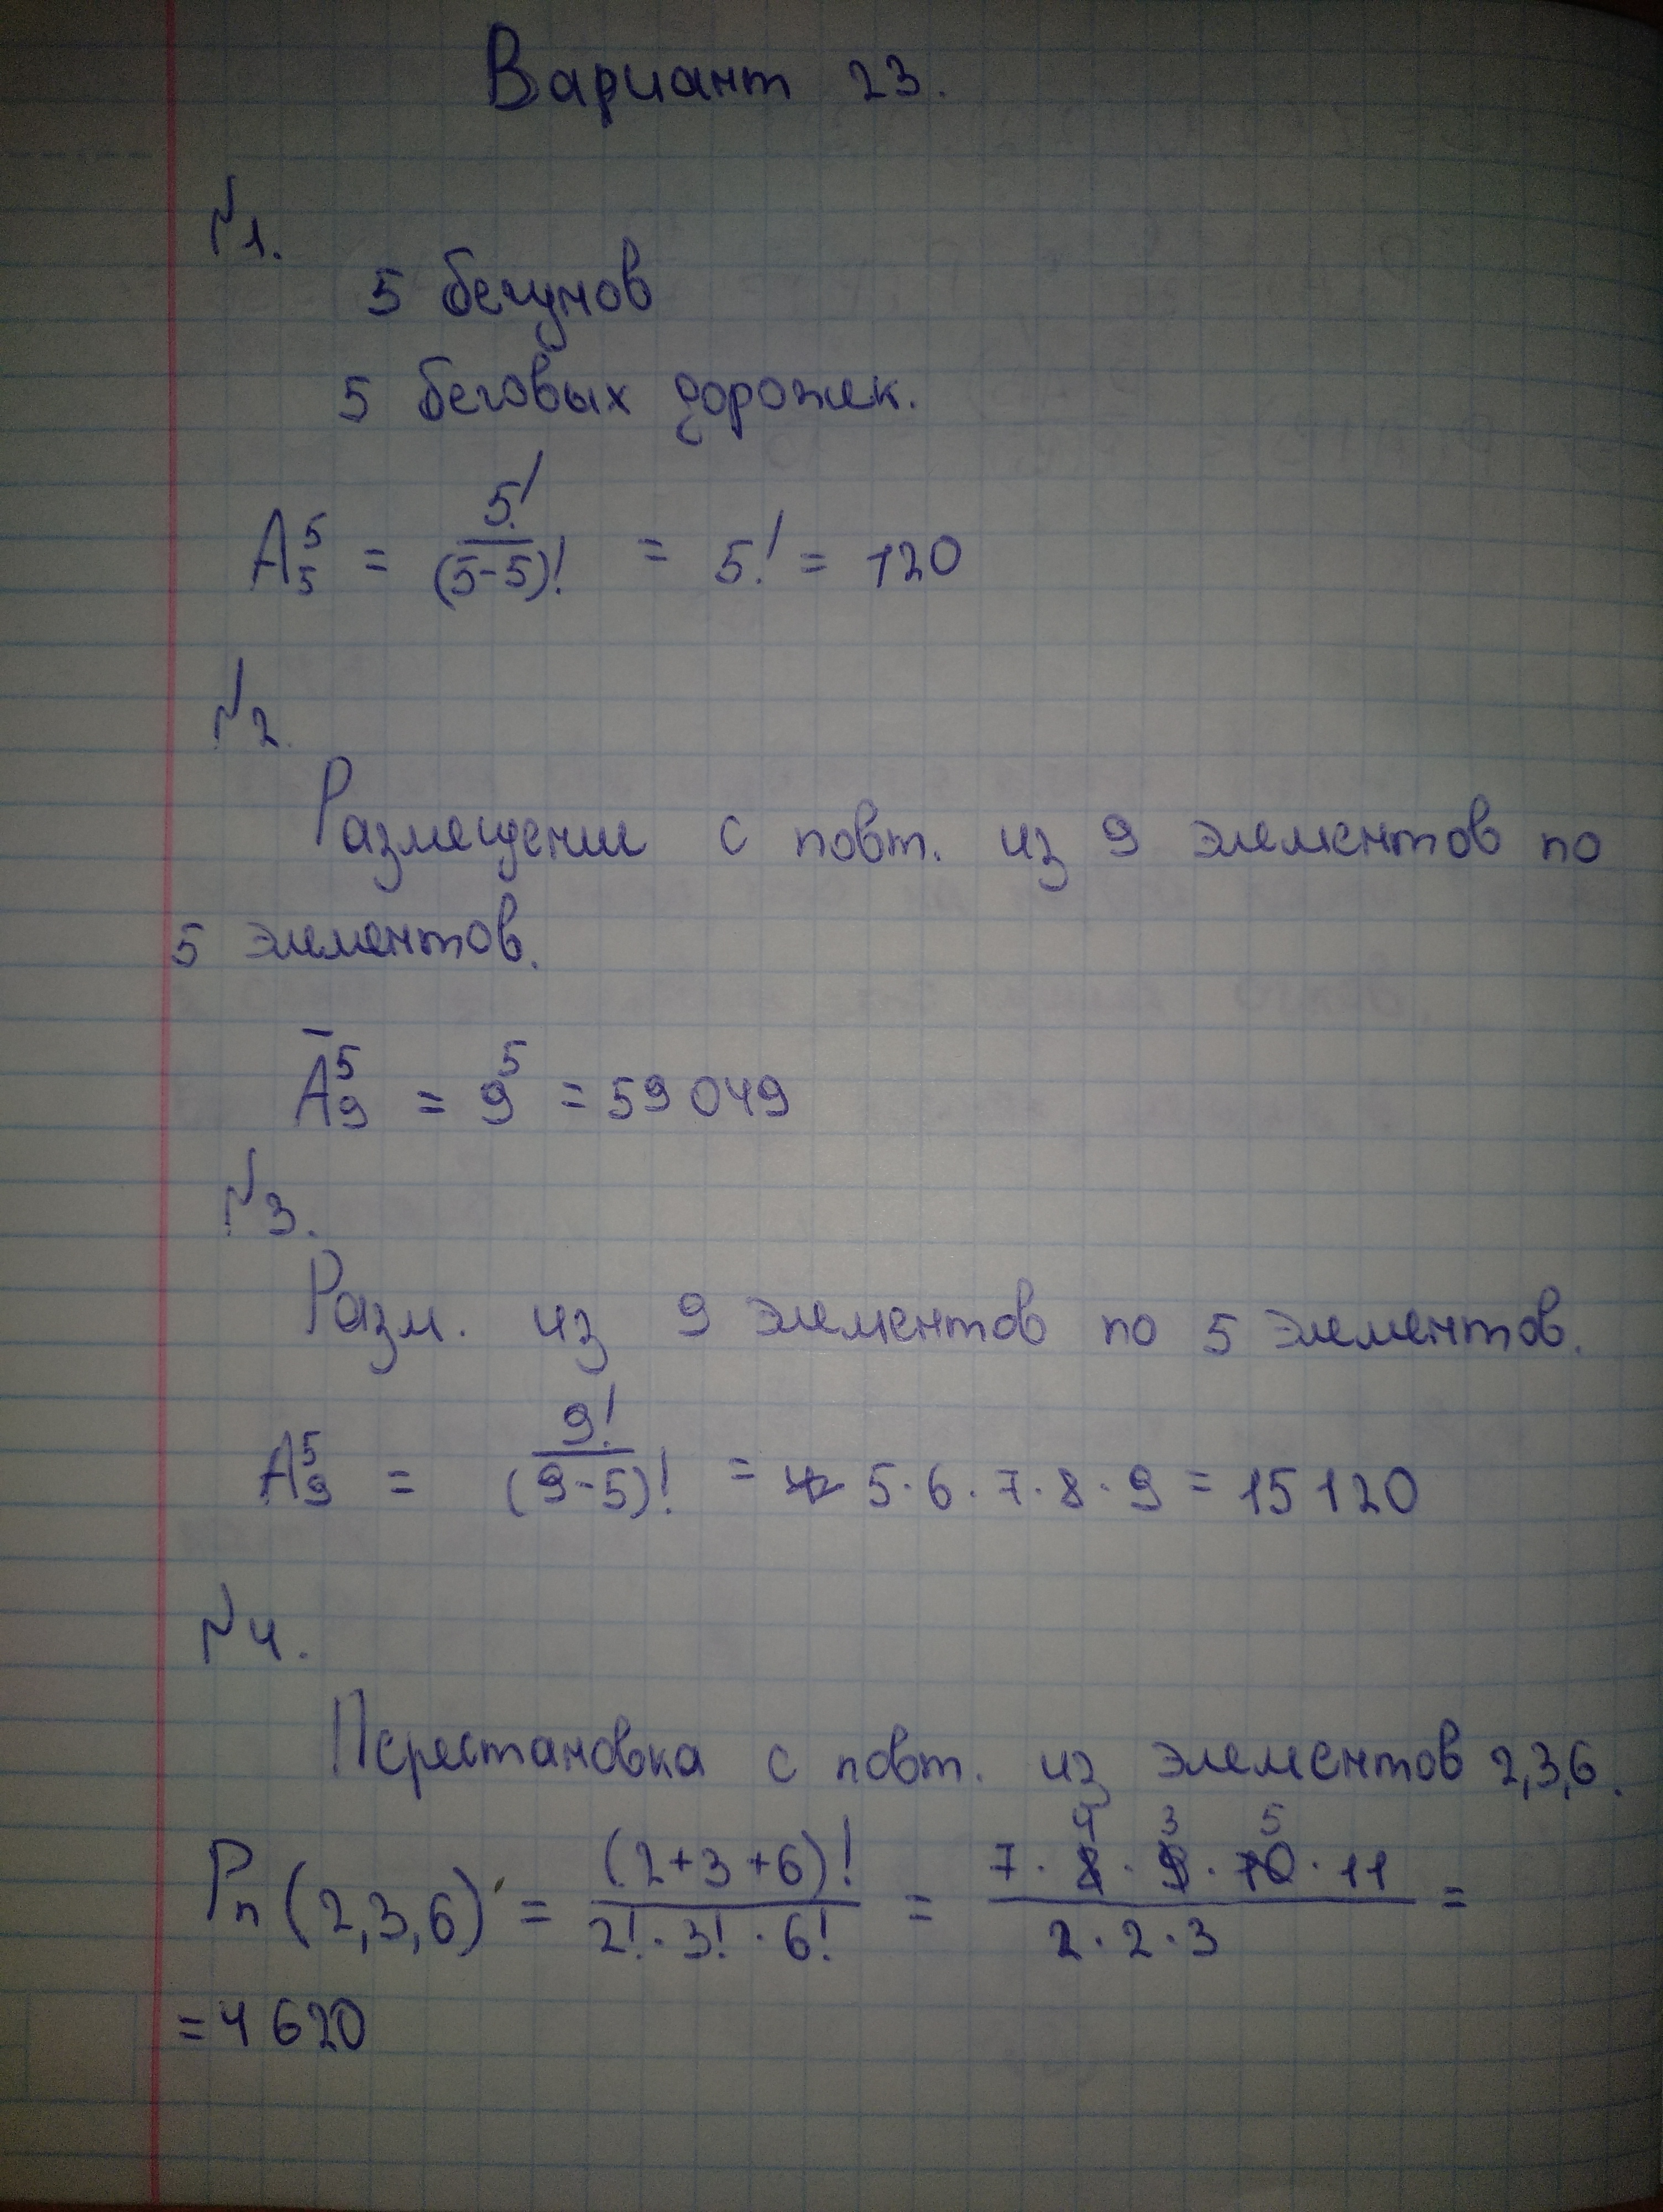 Вариант 23.
№1.
5 бегунов
5 беговых дорожек.
A₅⁵ = 5!/(5-5)! = 5! = 120
№2.
Размещение с повт. из 9 элементов по
5 элементов.
Ā₉⁵ = 9⁵ = 59049
№3.
Разм. из 9 элементов по 5 элементов.
A₉⁵ = 9!/(9-5)! = 5·6·7·8·9 = 15120
№4.
Перестановка с повт. из элементов 2,3,6.
Pₙ(2,3,6) = (2+3+6)!/(2!·3!·6!) = (7·8·9·10·11)/(2·2·3) =
= 4620